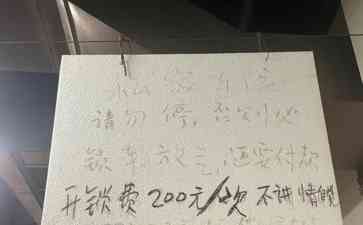 私家车位
请勿停,否则处
锁车放气,还要付款
开锁费200元/次 不讲情面